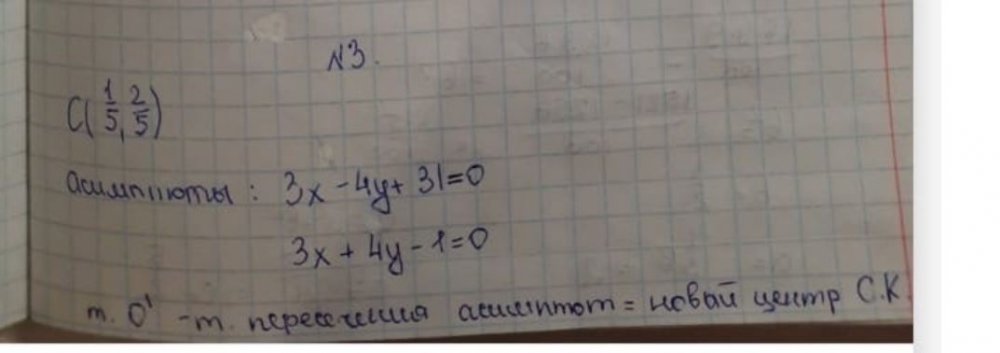 N3.
C(1/5, 2/5)
асимптоты : 3x - 4y + 31 = 0
3x + 4y - 1 = 0
т. O' - т. пересечения асимптот = новый центр С.К.